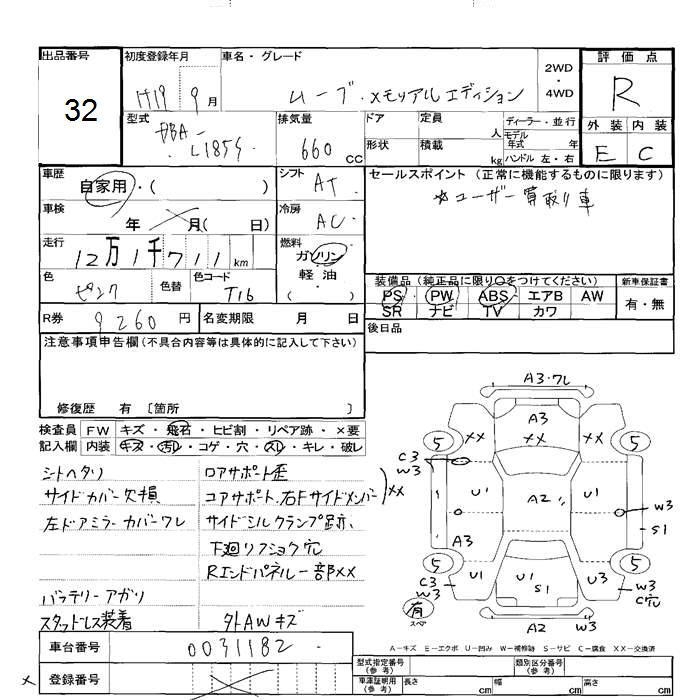 出品番号 初度登録年月 車名・グレード 2WD・4WD 評価点
32 H19 9月 ムーブ・メモリアルエディション R
型式 排気量 ドア 定員 人 ディーラー・並行 外装 内装
DBA-L185S 660cc 形状 積載 kg モデル年式 年 ハンドル 左・右 E C
車歴 自家用・( ) シフト AT セールスポイント (正常に機能するものに限ります)
※ユーザー買取り車
車検 年 月( 日) 冷房 AC
走行 12万1千711km 燃料 ガソリン 軽油 ( )
色 ピンク 色替 色コード T16
装備品 (純正品に限り○をつけてください) 新車保証書
PS PW ABS エアB AW 有・無
SR ナビ TV カワ
R券 9260円 名変期限 月 日 後日品
注意事項申告欄(不具合内容等は具体的に記入して下さい)
修復歴 有 〔箇所 〕
検査員 FW キズ・飛石・ヒビ割・リペア跡・×要
記入欄 内装 キズ・汚レ・コゲ・穴・スレ・キレ・破レ
シートヘタリ
サイドカバー欠損
左ドアミラーカバーワレ
バッテリーアガリ
スタッドレス装着
ロアサポート歪
コアサポート、右Fサイドメンバー XX
サイドシルクランプ跡、
下廻リフショク穴
Rエンドパネル一部XX
外AWキズ
A3・ワレ
A3
XX XX XX
5 5
C3
W3
U1 A2 U1 W3
S1
A3
5 5
C3
W3
U1 U1 S1 U3 W3
C穴
有
スペ
A2 W3
A−キズ E−エクボ U−凹み W−補修跡 S−サビ C−腐食 XX−交換済
車台番号 0031182
登録番号
型式指定番号(参考) 類別区分番号(参考)
車庫証明用(参考) 長さ cm 幅 cm 高さ cm